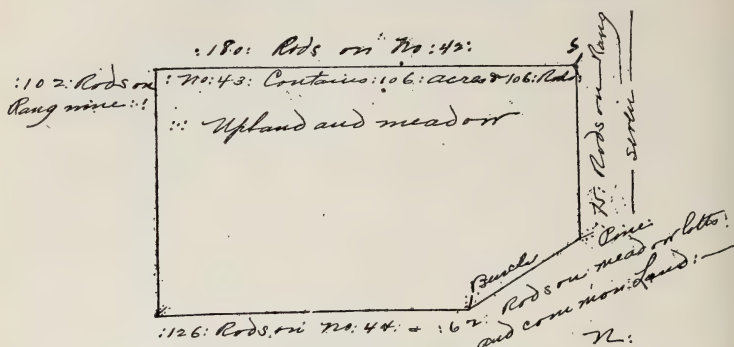 :180: Rods on No:42:
S
:102: Rods on
Rang nine::
:No:43: Contains:106: acres & 106: Rods
::: Upland and meadow
75: Rods on Rang
seven
Pine:
Burch
:126: Rods on No:44: & :62: Rods on meadow lotts:
and common Land:
N: